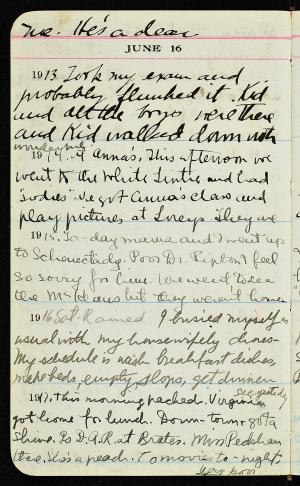 me. He's a dear
JUNE 16
1913 Took my exam and
probably flunked it. Kid
and all the boys were there
and Kid walked down with
1914. Anna's. This afternoon we
went to the White Turtle and had
"sodies". We got Anna's class and
play pictures at Loreys. They are
1915. To-day mama and I went up
to Schenectady. Poor Dr. Ripton I feel
so sorry for him. We went to see
the but they weren't home
1916 Sat. Rained. I busied myself as
usual with my housewifely chores-
My schedule is wash breakfast dishes,
make beds, empty slops, get dinner
1917. This morning packed. Virginia
got home for lunch. Down-town got a
shine. To D.A.R. at Brates. Miss
tea. She's a peach. To movies to-night.
very poor